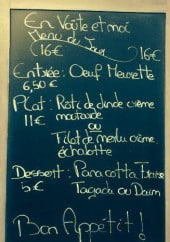 En Voûte et moi
Menu du Jour
16€ 16€
Entrée : Oeuf Meurette
6,50 €
Plat : Roti de dinde crème
11€ moutarde
ou
Filet de merlu crème
échalotte
Dessert : Panacotta Fraise
5€ Tagada ou Daim
Bon Appétit !